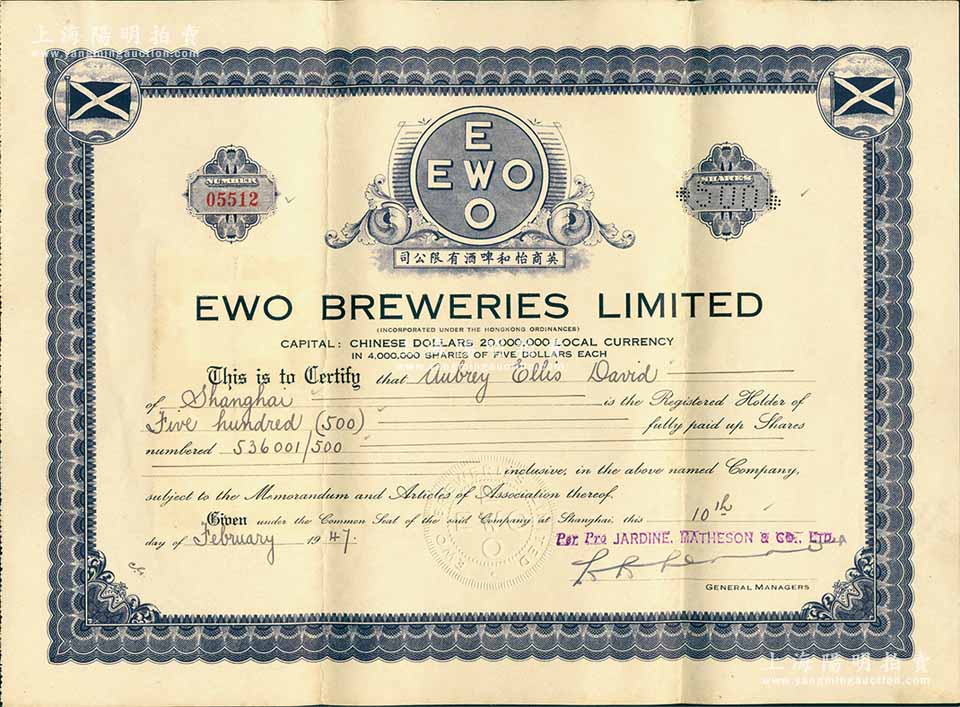 上海陽明拍賣
www.yangmingauction.com
E
EWO
O
NUMBER
05512
SHARES
500
英商怡和啤酒有限公司
EWO BREWERIES LIMITED
(INCORPORATED UNDER THE HONGKONG ORDINANCES)
CAPITAL: CHINESE DOLLARS 20,000,000 LOCAL CURRENCY
IN 4,000,000 SHARES OF FIVE DOLLARS EACH
This is to Certify that Aubrey Ellis David
of Shanghai is the Registered Holder of
Five hundred (500) fully paid up Shares
numbered 536001/500
inclusive, in the above named Company,
subject to the Memorandum and Articles of Association thereof.
Given under the Common Seal of the said Company at Shanghai, this 10th
day of February 1947.
Per Pro JARDINE, MATHESON & CO., LTD.
GENERAL MANAGERS
EWO BREWERIES LIMITED
EWO
O
上海陽明拍賣
www.yangmingauction.com